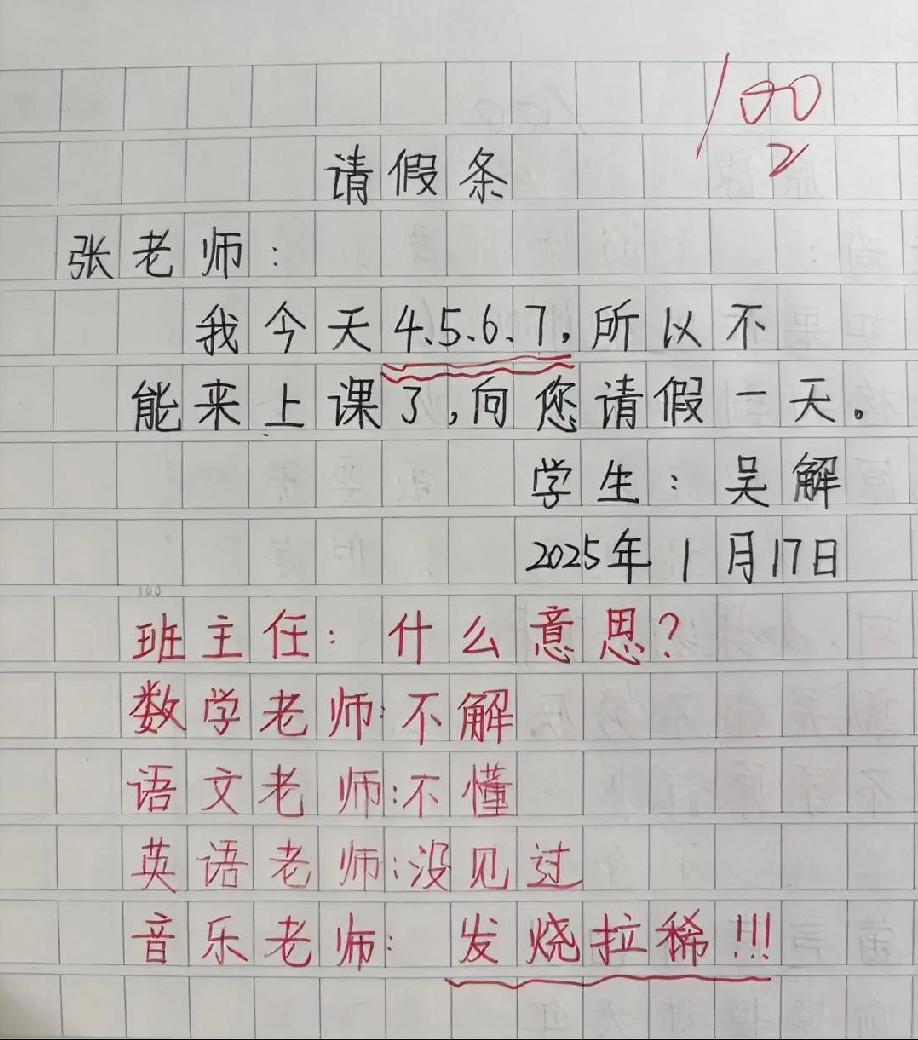 100
2
请假条
张老师:
我今天4.5.6.7.所以不
能来上课了,向您请假一天。
学生:吴解
2025年1月17日
100
班主任:什么意思?
数学老师:不解
语文老师:不懂
英语老师:没见过
音乐老师:发烧拉稀!!!